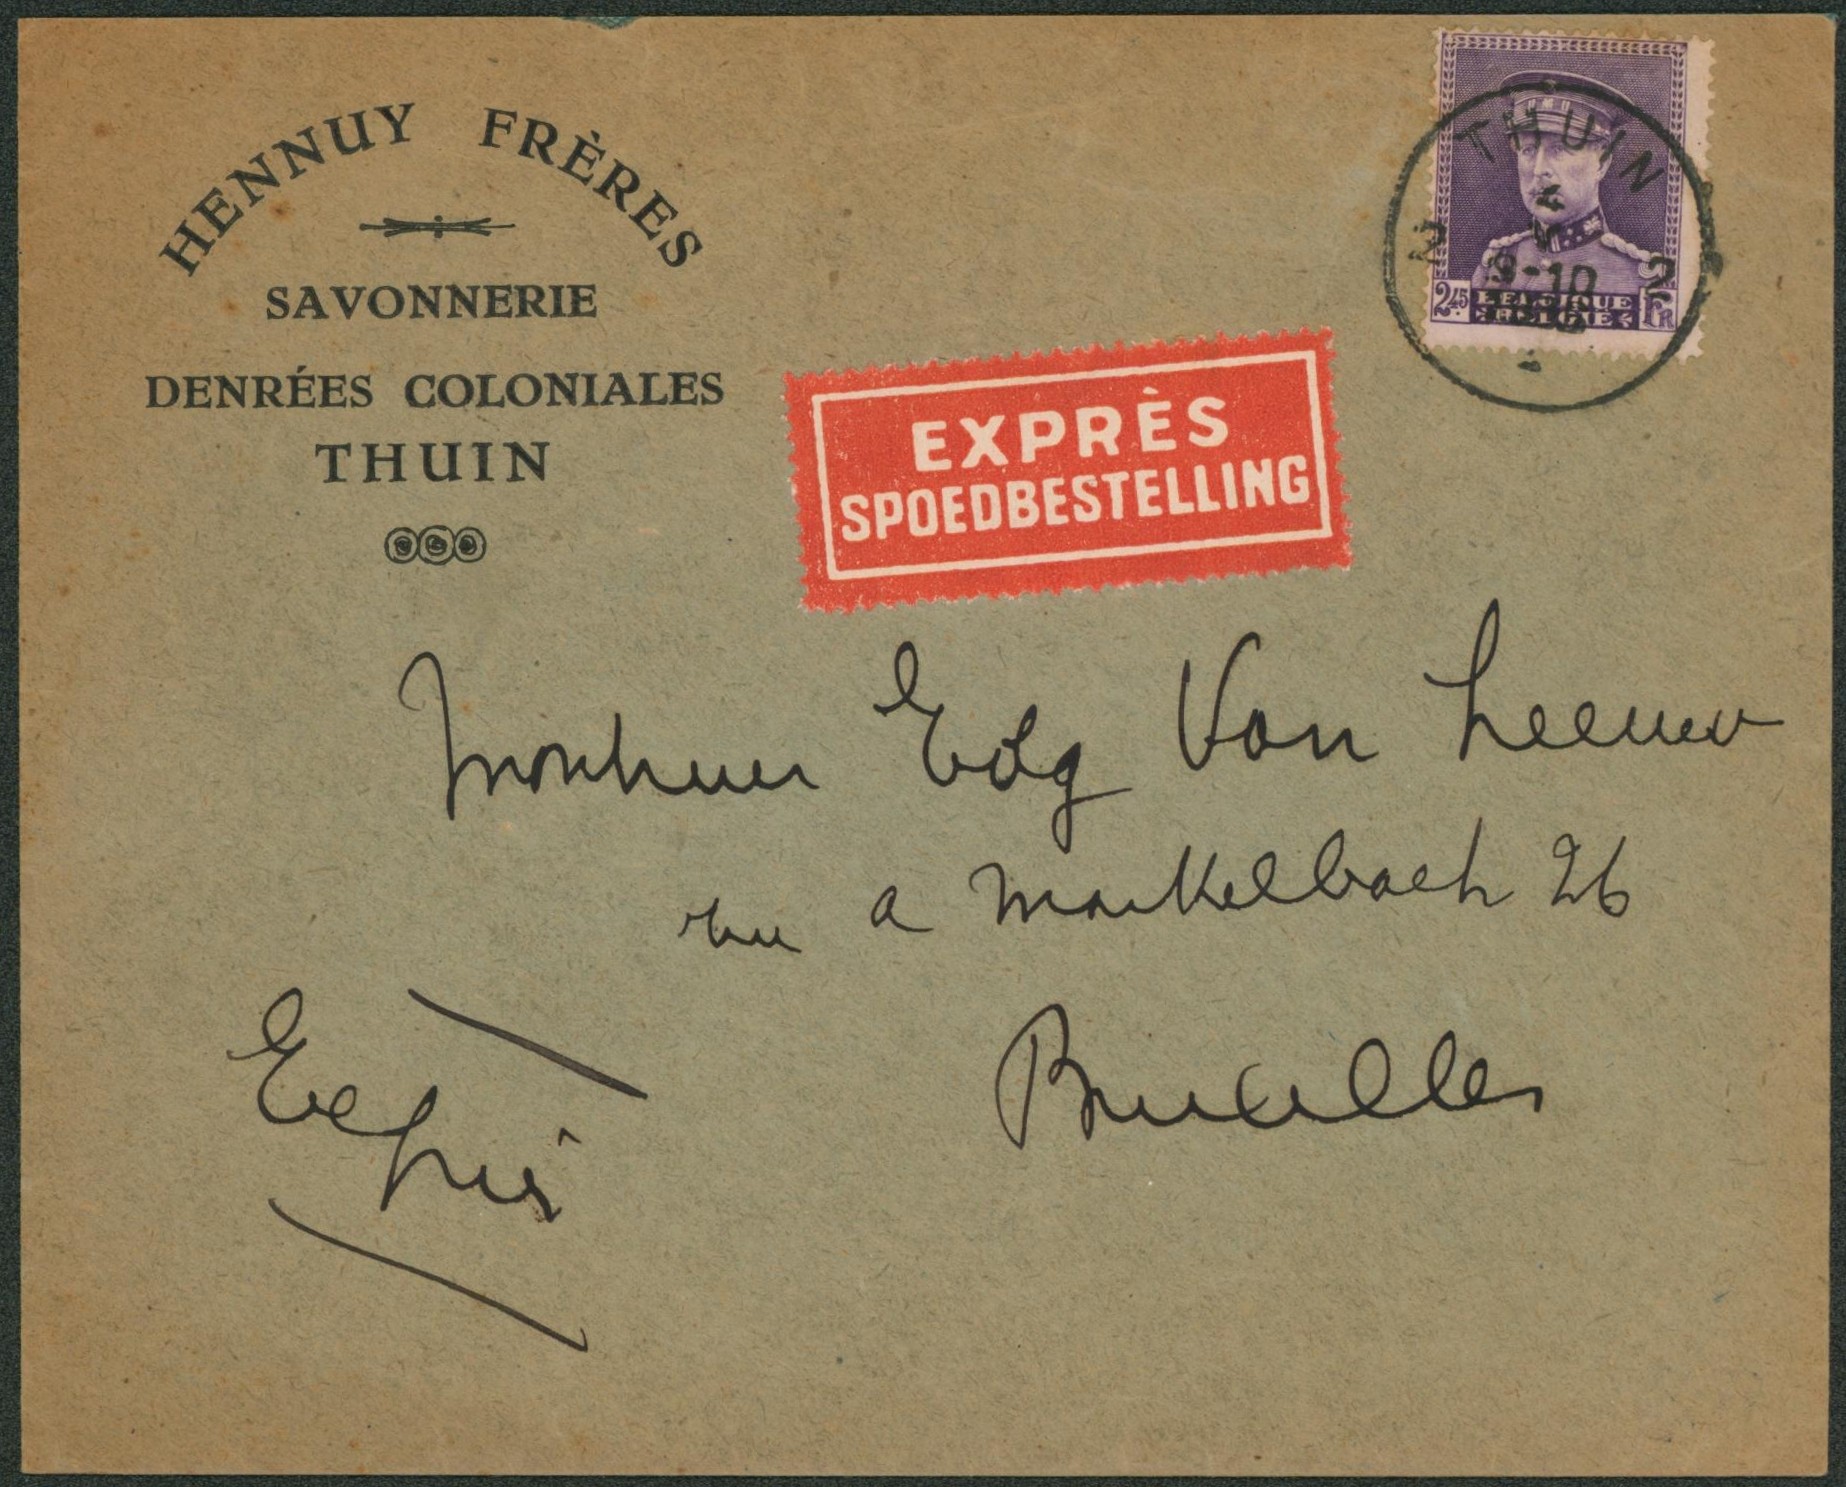 HENNUY FRÈRES
SAVONNERIE
DENRÉES COLONIALES
THUIN
THUIN
2 2
9-10
2.45 BELGIQUE FR
BELGIË
EXPRÈS
SPOEDBESTELLING
Monsieur Edg Van Leeuw
rue a Markelbach 26
Bruxelles
Exprès